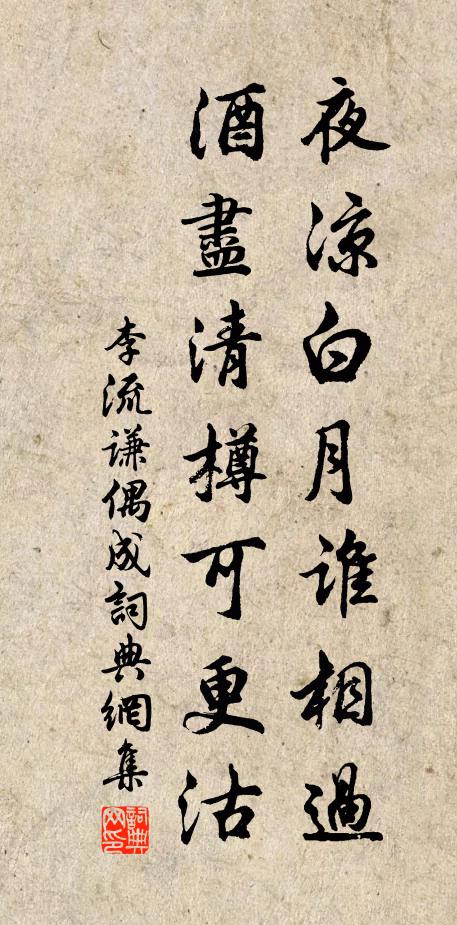 夜涼白月誰相過
酒盡清樽可更沽
李流謙偶成詞典網集
詞典
网印